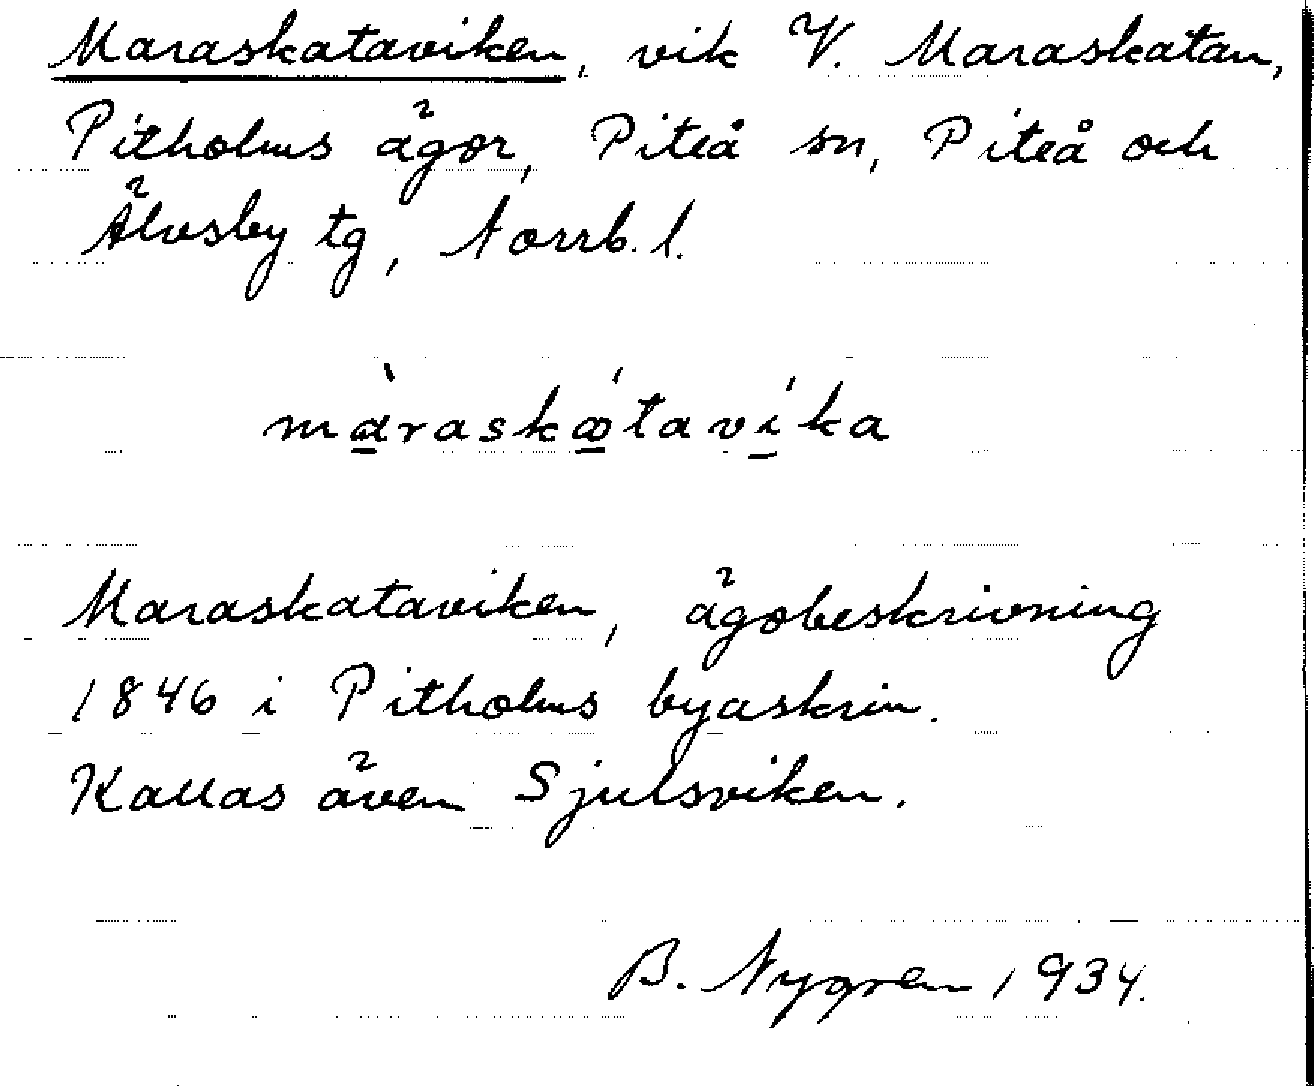 Maraskataviken, vik V. Maraskatan,
Pitholms ägor, Piteå sn, Piteå och
Älvsby tg, Norrb. l.
mà̱raskǽ̱taví̱ka
Maraskataviken, ägobeskrivning
1846 i Pitholms byaskrin.
Kallas även Sjulsviken.
B. Nygren 1934.